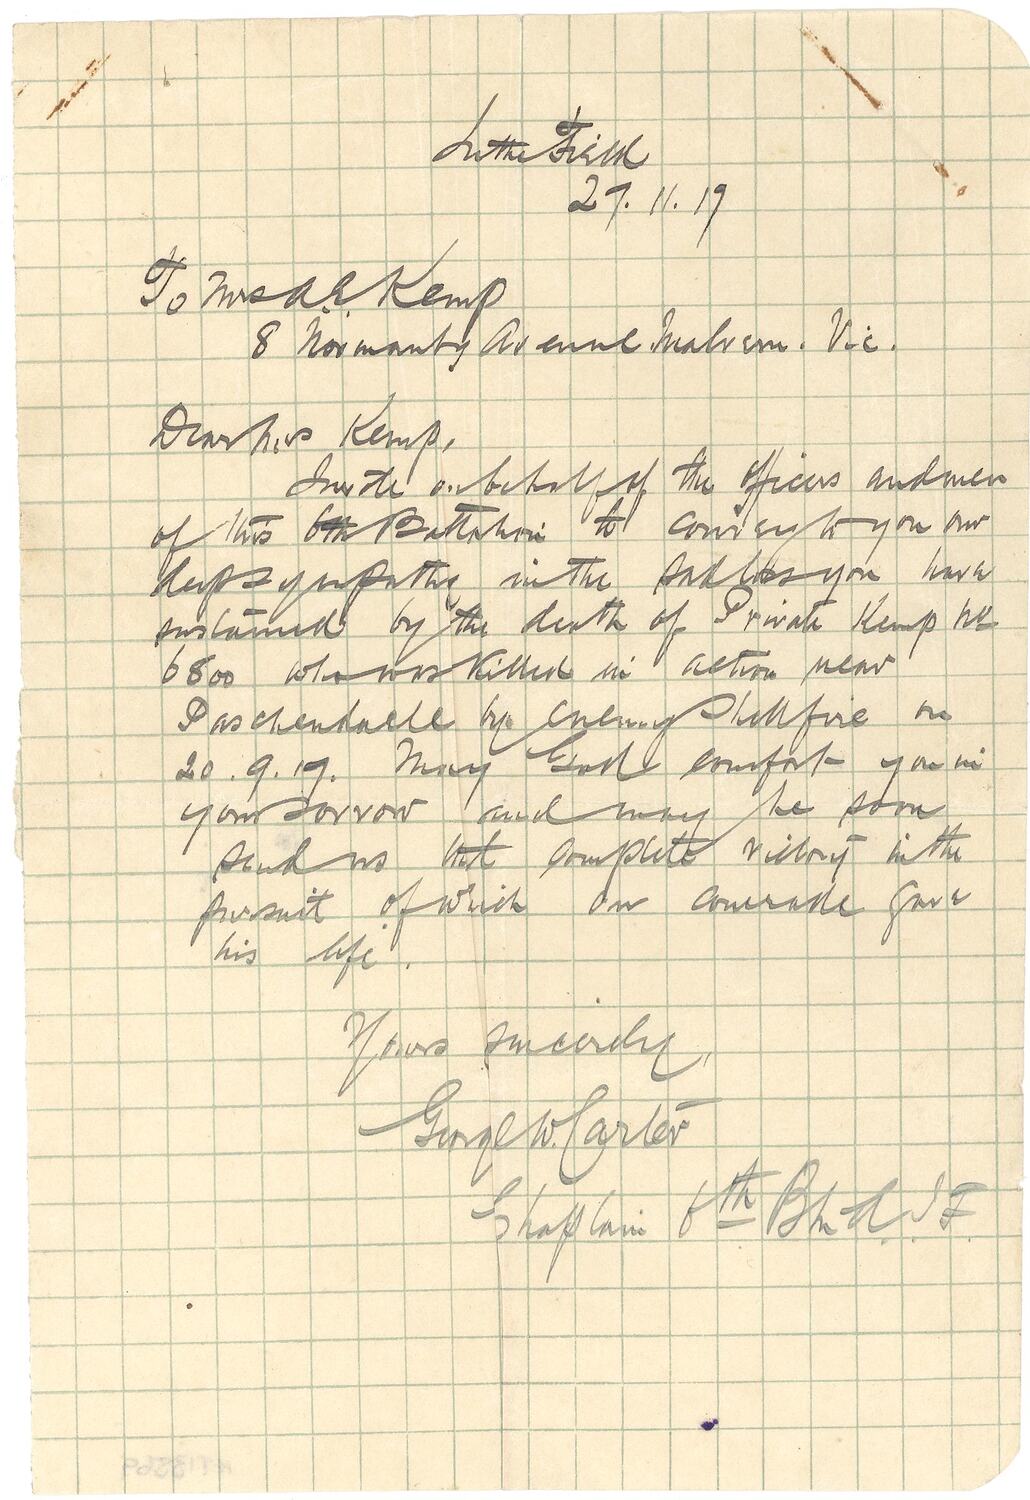 In the Field
27.11.17
To Mrs A.E. Kemp
8 Normanby Avenue. Malvern. Vic.
Dear Mrs Kemp,
I write on behalf of the officers and men
of this 6th Battalion to convey to you our
deep sympathy in the sad loss you have
sustained by the death of Private Kemp No
6800 who was killed in action near
Paschendaele by enemy shellfire on
20.9.17. May God comfort you in
your sorrow and may he soon
send us that complete victory in the
pursuit of which our comrade gave
his life.
Yours sincerely,
George W. Carter
Chaplain 6th Btn A.I.F.